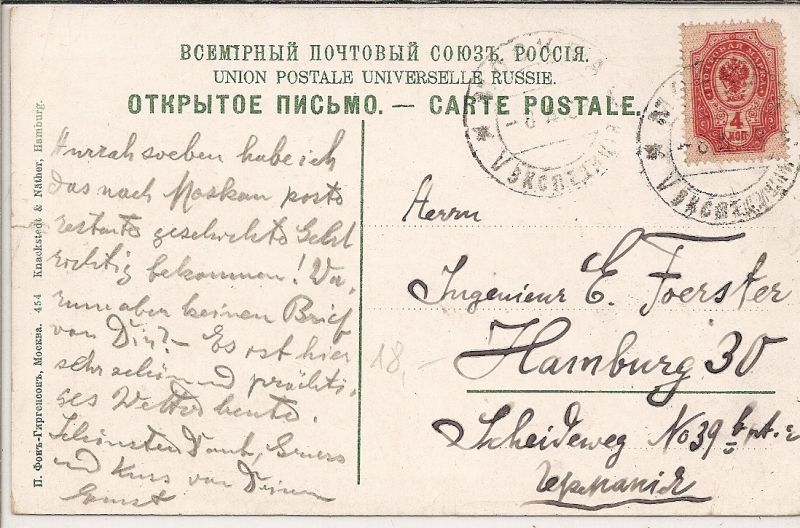 ВСЕМІРНЫЙ ПОЧТОВЫЙ СОЮЗЪ. РОССІЯ.
UNION POSTALE UNIVERSELLE RUSSIE.
ОТКРЫТОЕ ПИСЬМО. — CARTE POSTALE.
Hurrah soeben habe ich
das nach Moskau poste
restante geschickte Geld
richtig bekommen! Wa-
rum aber keinen Brief
von Dir? – Es ist hier
sehr schön und prächti-
ges Wetter heute.
Schönsten Dank, Gruss
und Kuss von Deinem
Ernst
18,-
Herrn
Ingenieur E. Foerster
Hamburg 30
Scheideweg No 39
Германія
П. Фонъ-Гиргенсонъ, Москва. 454 Knackstedt & Näther, Hamburg.
ПОЧТОВАЯ МАРКА
4
КОП
ЭКСПЕДИЦ